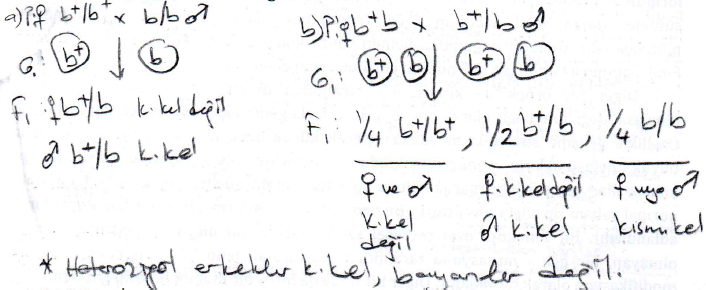 a) P: ♀ b⁺/b⁺ x b/b ♂
G: b⁺ ↓ b
F₁: ♀ b⁺/b k.kel değil
♂ b⁺/b k.kel
b) P: ♀ b⁺b x b⁺/b ♂
G₁: b⁺ b ↓ b⁺ b
F₁: 1/4 b⁺/b⁺, 1/2 b⁺/b, 1/4 b/b
♀ ve ♂ ♀ k.kel değil ♀ veya ♂
k.kel ♂ k.kel kısmi kel
değil
* Heterozigot erkekler k.kel, bayanlar değil.